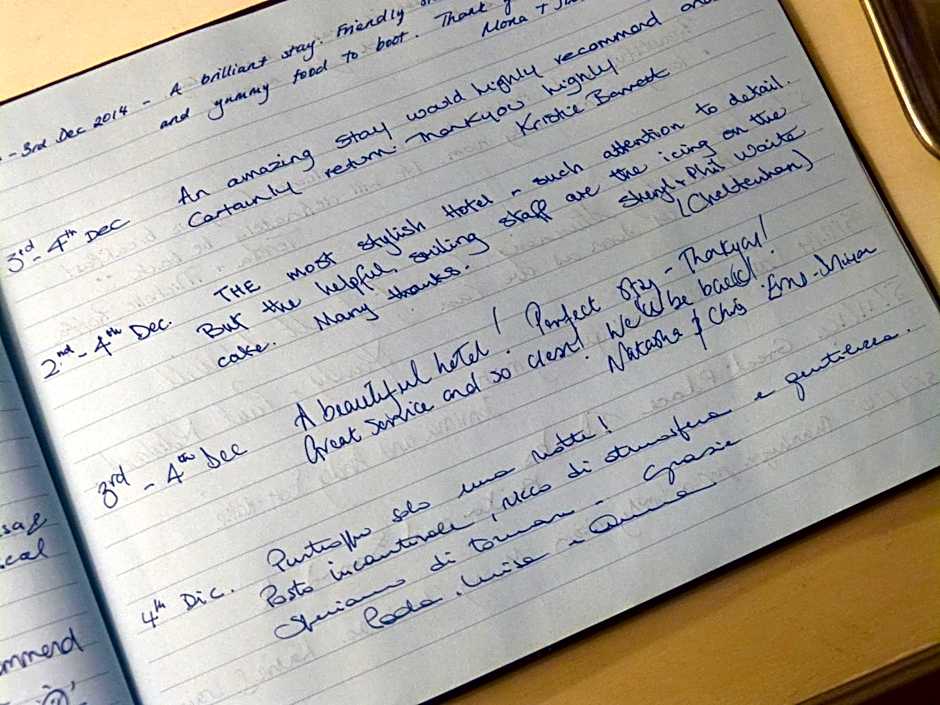 - 3rd Dec 2014 - A brilliant stay. Friendly
and yummy food to boot. Thank
Mona +
3rd - 4th DEC An amazing stay would highly recommend and
Certainly return. Thankyou highly
Kristie Barrett
2nd - 4th Dec. THE most stylish Hotel - such attention to detail.
But the helpful, smiling staff are the icing on the
cake. Many thanks. Sheryl + Phil Waite
(Cheltenham)
3rd - 4th Dec A beautiful hotel! Perfect stay - Thankyou!
Great service and so clean! We'll be back!
Natasha & Chris
4th Dic. Purtroppo solo una notte!
Posto incantevole, ricco di atmosfera e gentilezza.
Speriamo di tornare - Grazie
Luisa e
ical
mmend